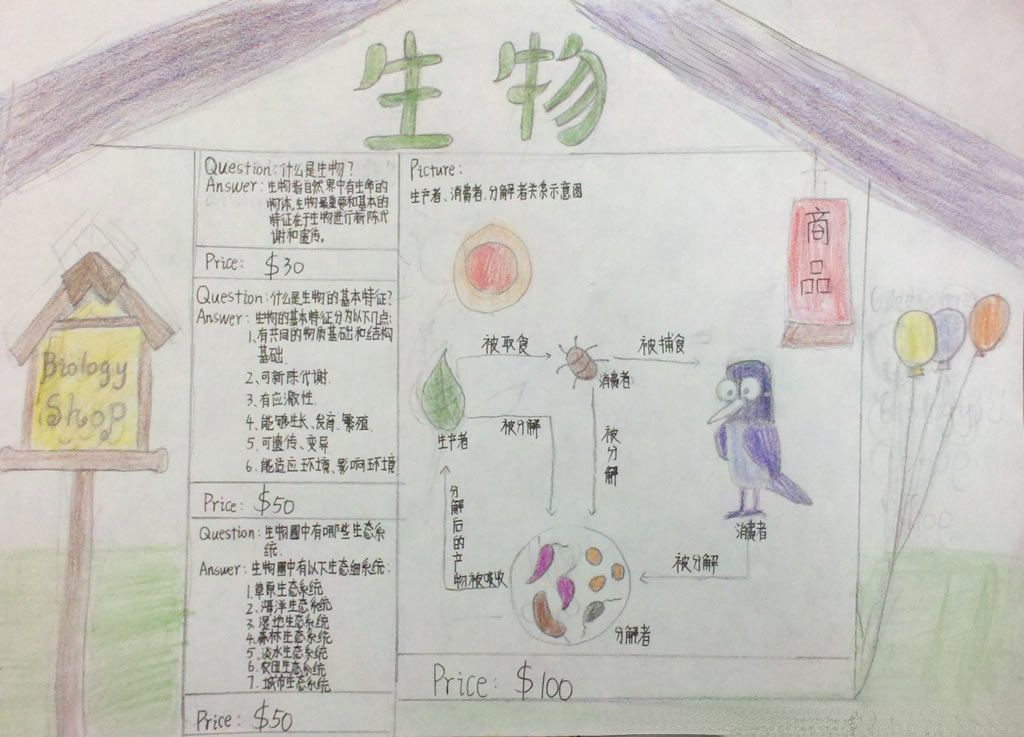 生物
Biology
Shop
Question:什么是生物?
Answer:生物指自然界中有生命的
物体,生物最重要和基本的
特征在于生物进行新陈代
谢和遗传。
Price: $30
Question:什么是生物的基本特征?
Answer:生物的基本特征分为以下几点:
1、有共同的物质基础和结构
基础.
2、可新陈代谢.
3、有应激性.
4、能够生长、发育.繁殖.
5、可遗传、变异
6、能适应环境、影响环境
Price: $50
Question:生物圈中有哪些生态系
统.
Answer:生物圈中有以下生态细系统:
1、草原生态系统
2、海洋生态系统
3、湿地生态系统
4、森林生态系统
5、淡水生态系统
6、农田生态系统
7、城市生态系统
Price: $50
Picture:
生产者、消费者.分解者关系示意图
商品
被取食
被捕食
消费者
生产者
被分解
被分解
消费者
分解后的产物被吸收
被分解
分解者
Price: $100